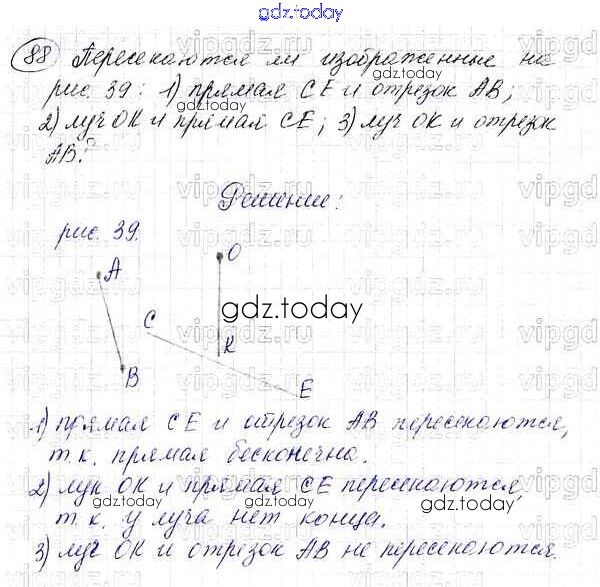 gdz.today
88 Пересекаются ли изображенные на
рис. 39: 1) прямая CE и отрезок AB;
2) луч OK и прямая CE; 3) луч OK и отрезок
AB?
Решение:
рис. 39.
A
O
C
K
B
E
1) прямая CE и отрезок AB пересекаются,
т.к. прямая бесконечна.
2) луч OK и прямая CE пересекаются,
т.к. у луча нет конца.
3) луч OK и отрезок AB не пересекаются.
gdz.today
gdz.today
gdz.today
gdz.today
gdz.today
gdz.today
gdz.today
gdz.today
vipgdz.ru